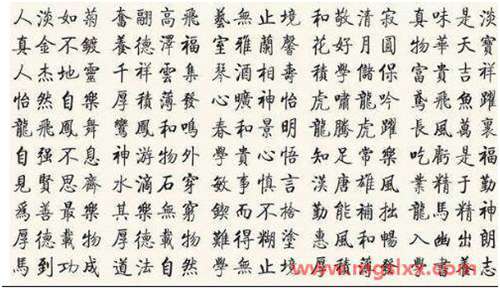 人淡如菊 奮翮高飛 藝無止境 和敬清寂 真味是淡
真金不鍍 養德澤福 室雅蘭馨 花好月圓 物華天寶
人杰地靈 千祥雲集 琴酒相壽 學儲保 富貴吉祥
怡然自樂 厚積薄發 曠神怡 虎嘯龍吟 鳶飛魚躍
龍飛鳳舞 鸞鳳和鳴 春和景明 龍騰虎躍 長風萬裏
自强不息 神游物外 學貴心悟 知足常樂 吃虧是福
見賢思齊 水滴石穿 敏事慎言 漢唐雄風 業精于勤
爲善最樂 其樂無窮 鍥而不捨 勤能補拙 龍馬精神
厚德載物 厚德載物 難得糊塗 惠風和暢 入幽出朗
馬到功成 道法自然 學無止境 厚積薄發 學書養志